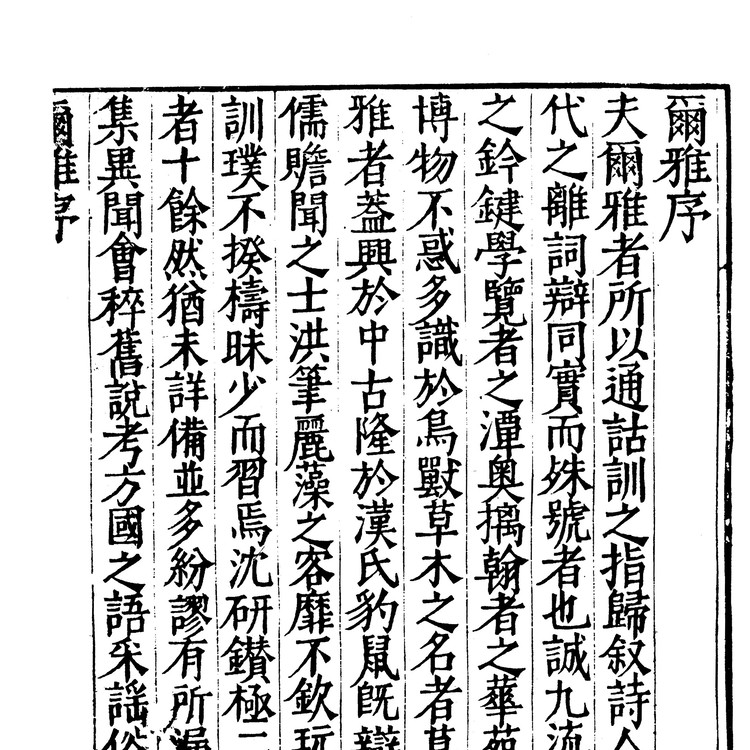 爾雅序
夫爾雅者所以通詁訓之指歸叙詩人
代之離詞辯同實而殊號者也誠九流
之鈐鍵學覽者之潭奥摛翰者之華苑
博物不惑多識於鳥獸草木之名者莫
雅者葢興於中古隆於漢氏豹鼠旣辯
儒贍聞之士洪筆麗藻之客靡不欽玩
訓璞不揆檮昧少而習焉沈研鑚極二
者十餘然猶未詳備並多紛謬有所漏
集異聞會稡舊說考方國之語采謠俗
爾雅序